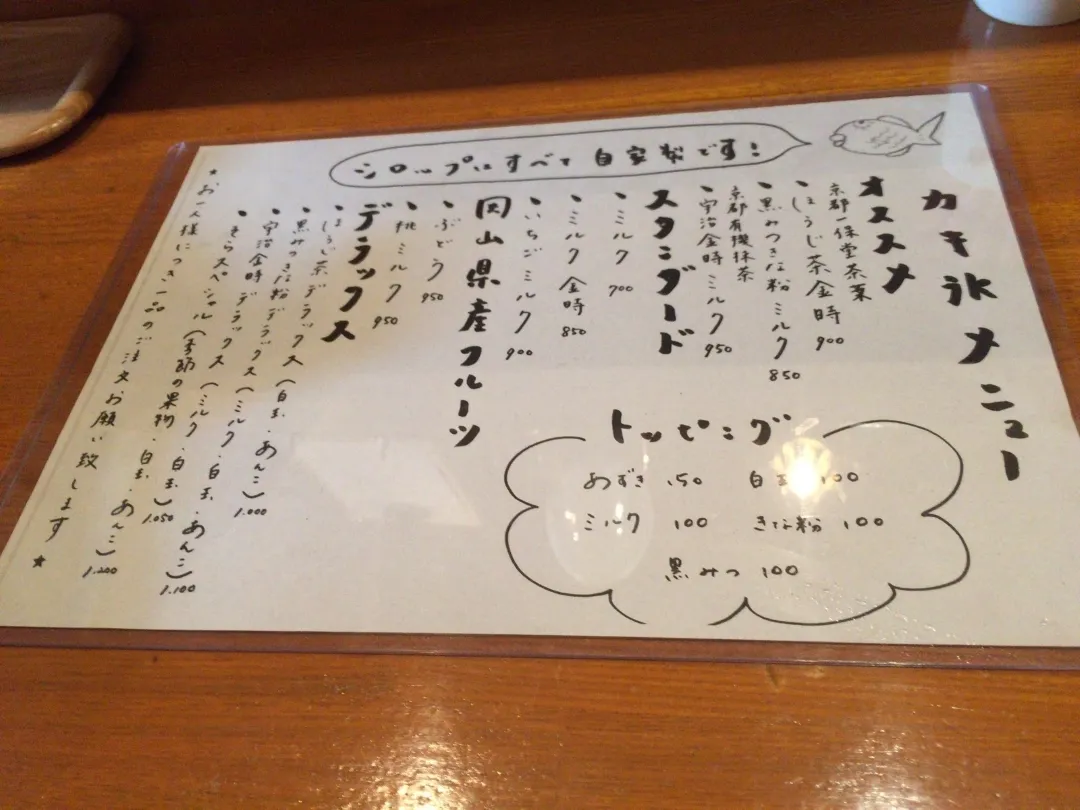 カキ氷メニュー
シロップはすべて自家製です!
オススメ
京都一保堂茶葉
・ほうじ茶金時 900
・黒みつきな粉ミルク 850
京都有機抹茶
・宇治金時ミルク 950
スタンダード
・ミルク 700
・ミルク金時 850
・いちごミルク 900
岡山県産フルーツ
・ぶどう 950
・桃ミルク 950
デラックス
・ほうじ茶デラックス(白玉・あんこ) 1.000
・黒みつきな粉デラックス(ミルク・白玉) 1.050
・宇治金時デラックス(ミルク・白玉・あんこ) 1.100
・そらスペシャル(季節の果物・白玉・あんこ) 1.200
★お一人様につき一品のご注文お願い致します★
トッピング
あずき 150 白玉 100
ミルク 100 きな粉 100
黒みつ 100